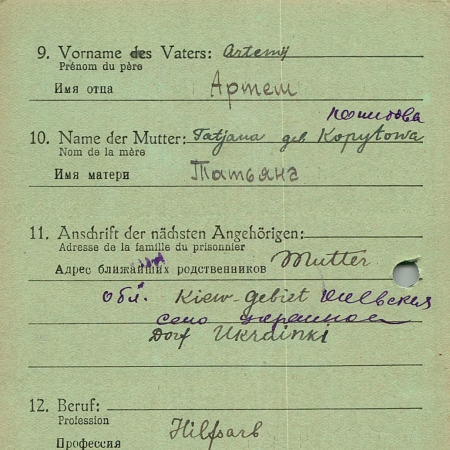 9. Vorname des Vaters: Artemy
Prénom du père
Имя отца Артем
Копитова
10. Name der Mutter: Tatjana geb Kopytowa
Nom de la mère
Имя матери Татьяна
11. Anschrift der nächsten Angehörigen:
Adresse de la famille du prisonnier
Адрес ближайших родственников Mutter
обл. Kiew-gebiet Киевская
село
Dorf Ukrainki
12. Beruf:
Profession
Профессия Hilfsarb